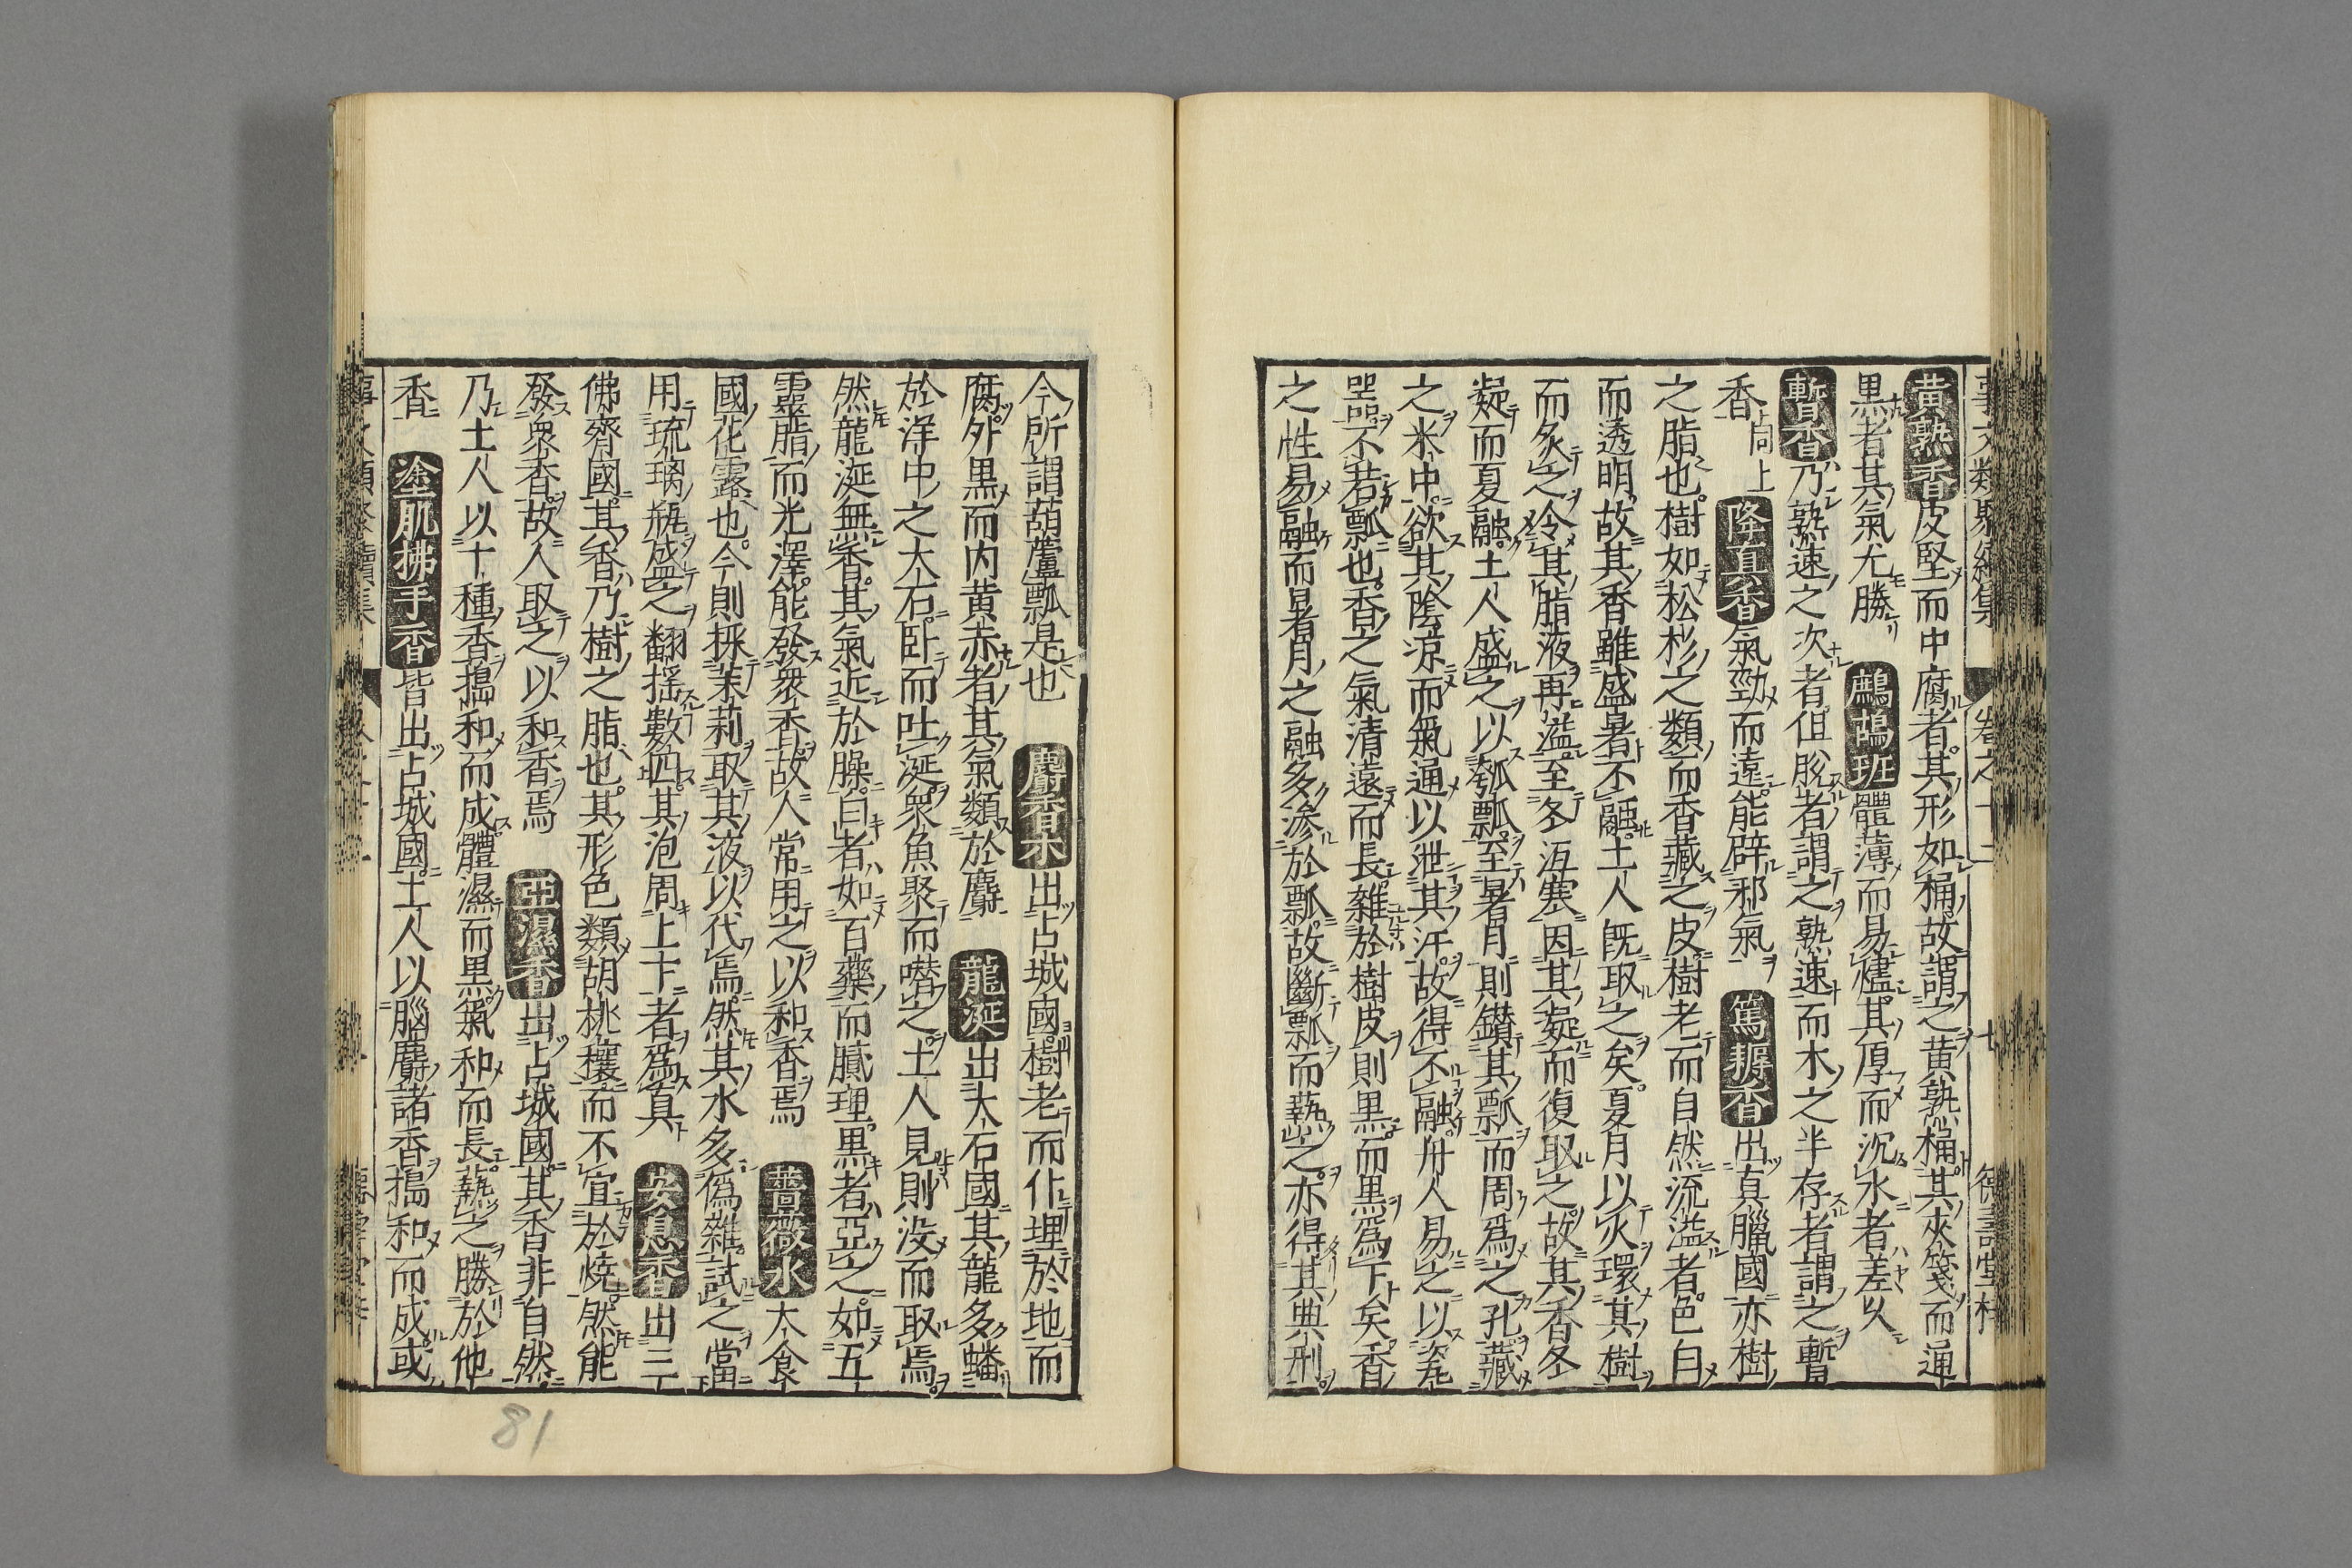 黄熟香皮堅而中腐者其形如桶故謂之黄熟桶其夾箋而通
黒者其氣尤勝 鷓鴣班體薄而易燼其厚而沉水者差以
暫香乃熟速之次者但脫者謂之熟速而木之半存者謂之暫
香向上 降真香氣勁而遠能辟邪氣 篤耨香出真臘國亦樹
之脂也樹如松杉之類而香藏之皮樹老而自然流溢者色白
而透明故其香雖盛暑不融土人既取之矣夏月以火環其樹
而炙之令其脂液再溢至冬沍寒因其凝而復取之故其香冬
凝而夏融土人盛之以瓠瓢至暑月則鑚其瓢而周爲之孔藏
之水中欲其陰凉而氣通以泄其汗故得不融舟人易之以瓷
噐不若瓢也香之氣清遠而長雜於樹皮則黒而黒爲下矣香
之性易融而暑月之融多滲於瓢故斷瓢而爇之亦得其典刑
今所謂葫蘆瓢是也 麝香木出占城國樹老而仆埋於地而
腐外黒而内黄赤者其氣類於麝 龍涎出大石國其龍多蟠
於洋中之大石卧而吐涎衆魚聚而噆之土人見則没而取焉
然龍涎無香其氣近於臊白者如百藥而膩理黒者亞之如五
靈脂而光澤能發衆香故人常用之以和香焉 薔薇水大食
國花露也今則採茉莉取其液以代焉然其水多偽雜試之當
用琉璃瓶盛之翻揺數四其泡周上下者爲真 安息香出三
佛齊國其香乃樹之脂也其形色類胡桃穰而不宜於燒然能
發衆香故人取之以和香焉 亞濕香出占城國其香非自然
乃土人以十種香搗和而成體濕而黒氣和而長爇之勝於他
香 塗肌拂手香皆出占城國土人以腦麝諸香搗和而成或
81